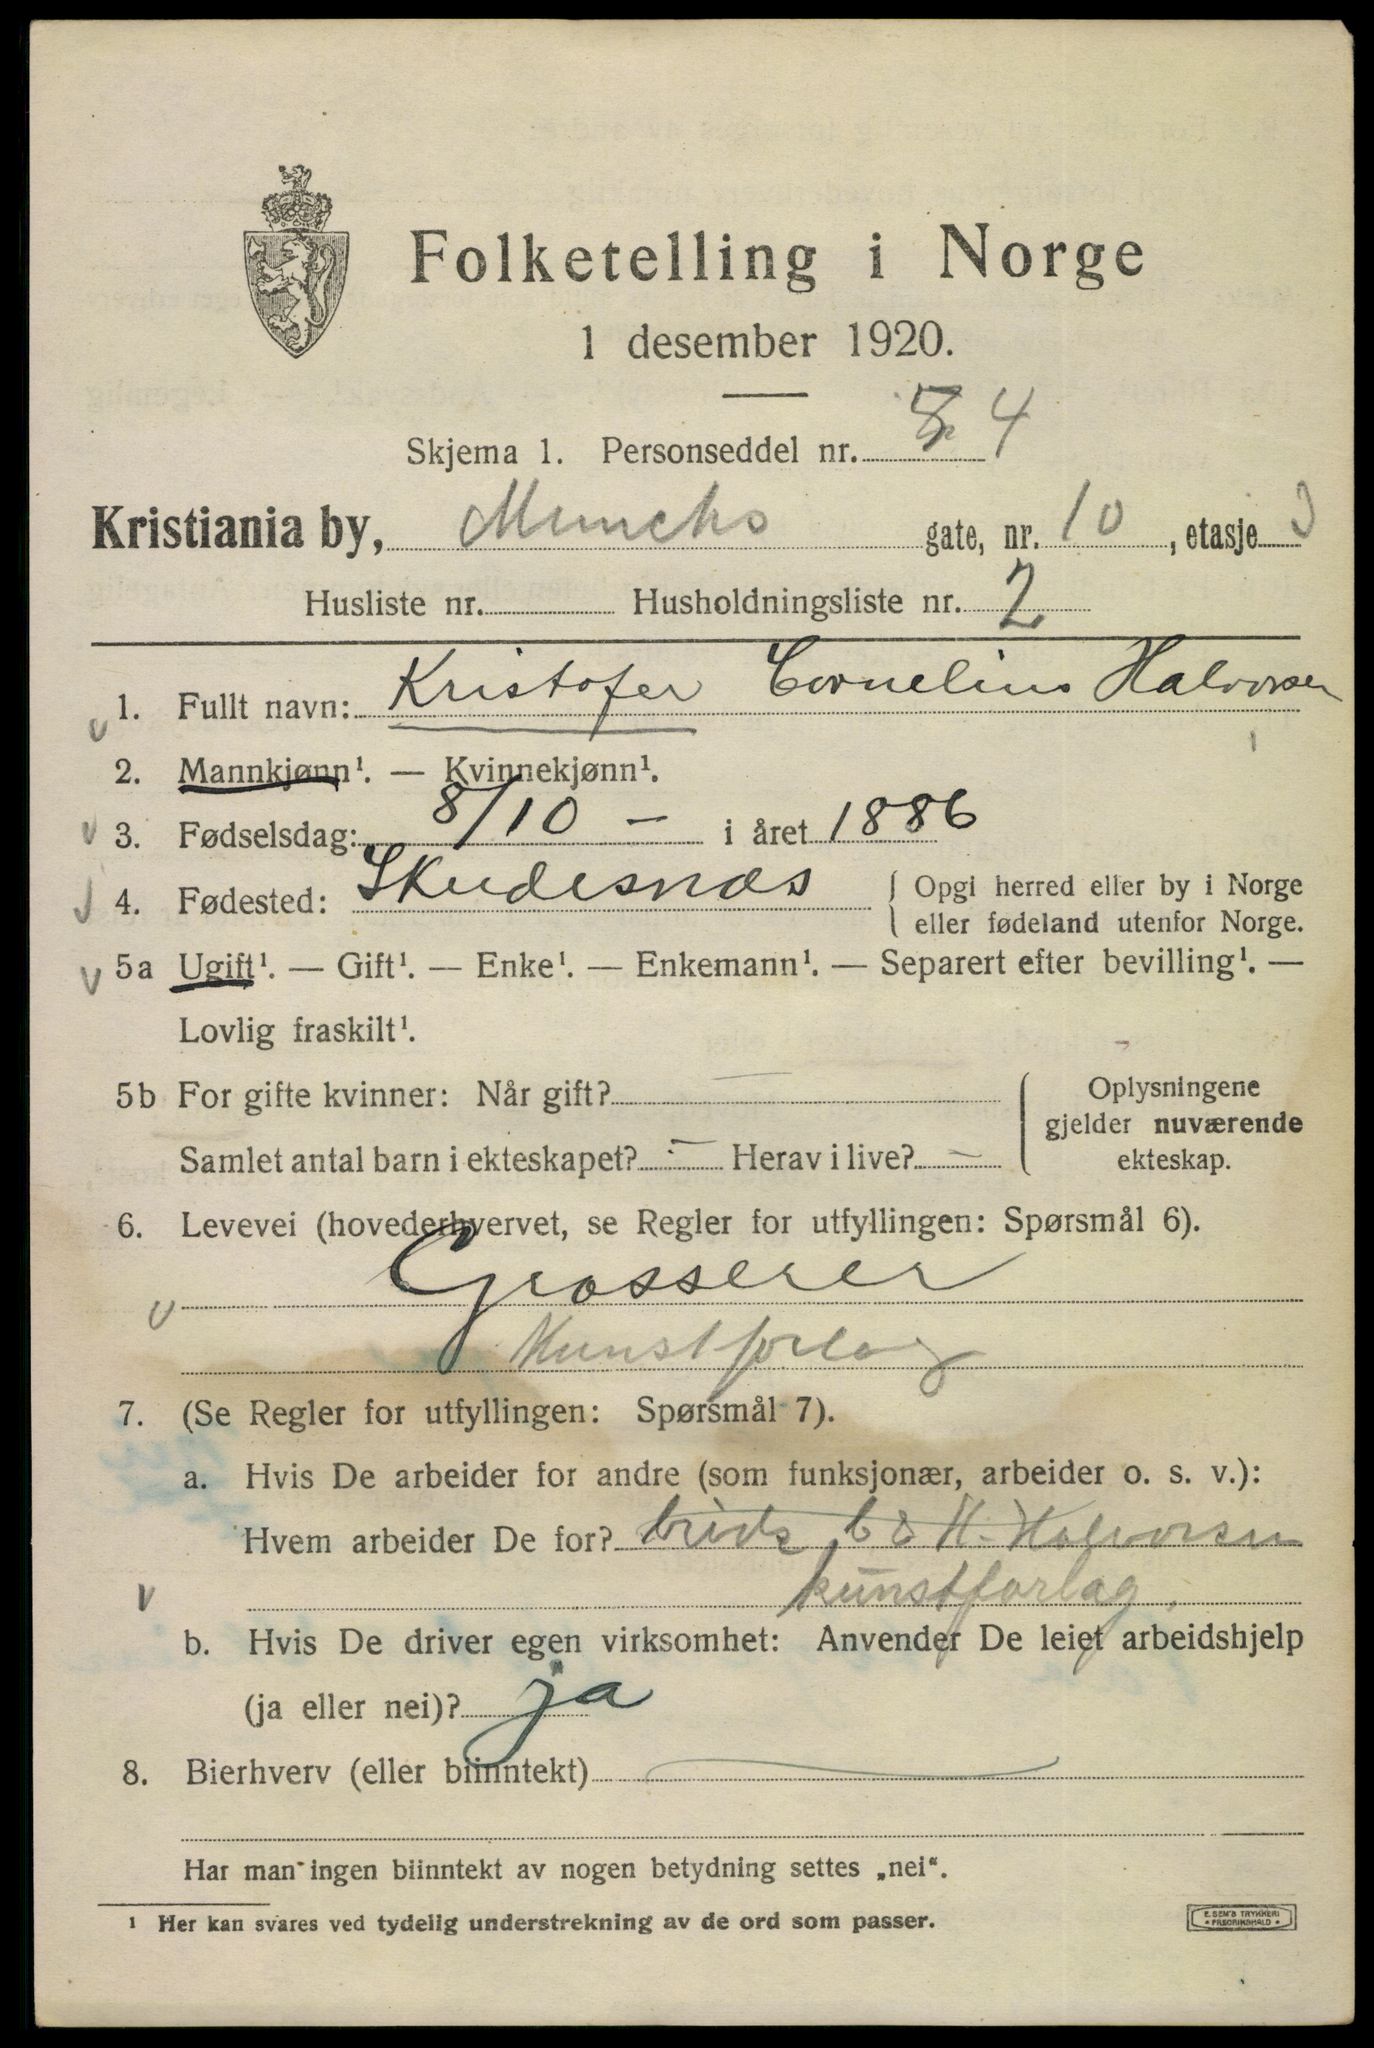 Folketelling i Norge
1 desember 1920.
Skjema 1. Personseddel nr. 4
Kristiania by, Munchs gate, nr. 10, etasje 3
Husliste nr. Husholdningsliste nr. 2
1. Fullt navn: Kristofer Cornelius Halvorsen
2. Mannkjønn¹. — Kvinnekjønn¹.
3. Fødselsdag: 8/10 – i året 1886
4. Fødested: Skudesnæs { Opgi herred eller by i Norge
eller fødeland utenfor Norge.
5a Ugift¹. — Gift¹. — Enke¹. — Enkemann¹. — Separert efter bevilling¹. —
Lovlig fraskilt¹.
5b For gifte kvinner: Når gift? —
Samlet antal barn i ekteskapet? — Herav i live? —
Oplysningene
gjelder nuværende
ekteskap.
6. Levevei (hovederhvervet, se Regler for utfyllingen: Spørsmål 6).
Grosserer
Kunstforlag
7. (Se Regler for utfyllingen: Spørsmål 7).
a. Hvis De arbeider for andre (som funksjonær, arbeider o. s. v.):
Hvem arbeider De for? H. Halvorsen
kunstforlag.
b. Hvis De driver egen virksomhet: Anvender De leiet arbeidshjelp
(ja eller nei)? ja
8. Bierhverv (eller biinntekt) —
Har man ingen biinntekt av nogen betydning settes „nei“.
¹ Her kan svares ved tydelig understrekning av de ord som passer.
E. SEM'S TRYKKERI
• FREDRIKSHALD •